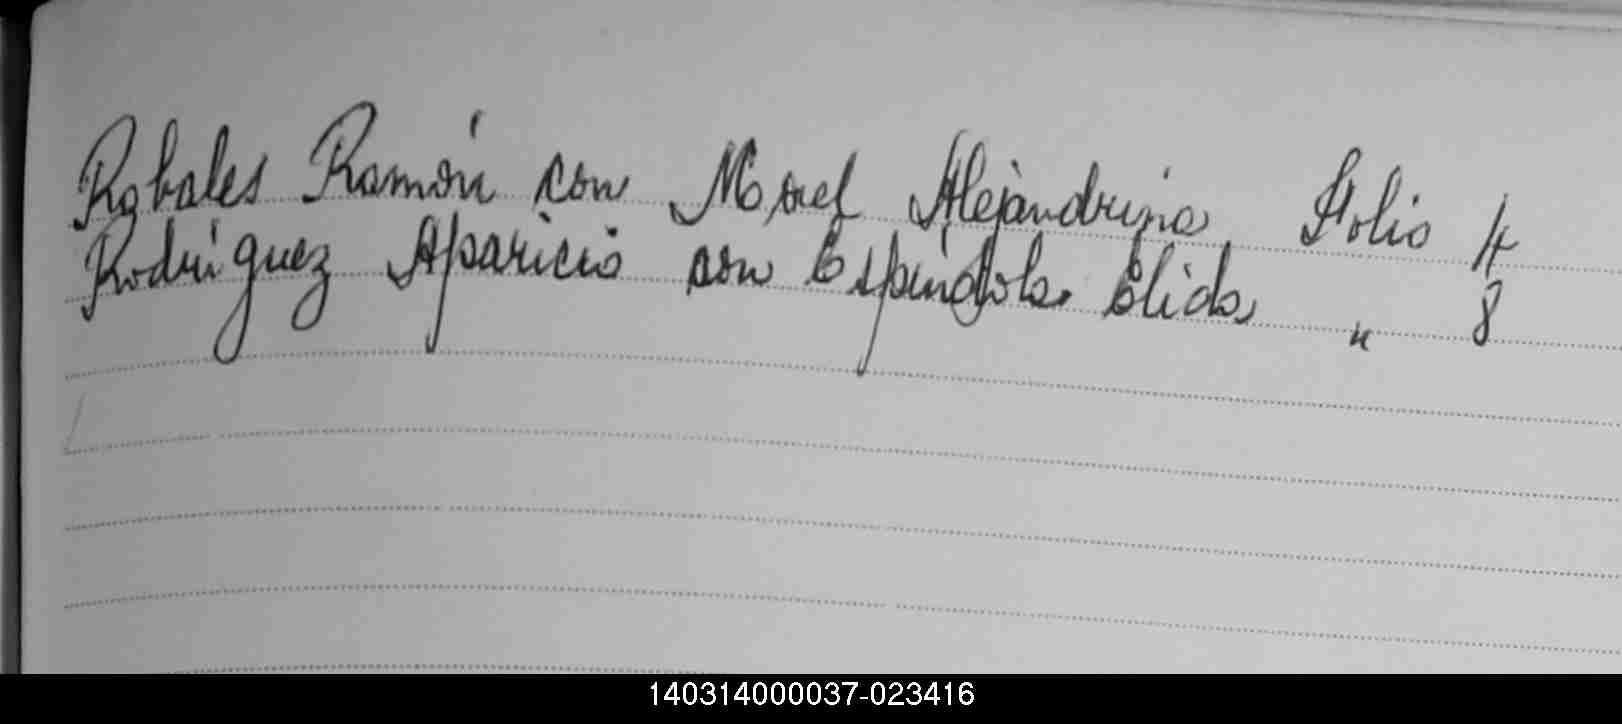 Robales Ramón con Morel Alejandrina Folio 4
Rodríguez Aparicio con Espíndola Elida " 8
140314000037-023416